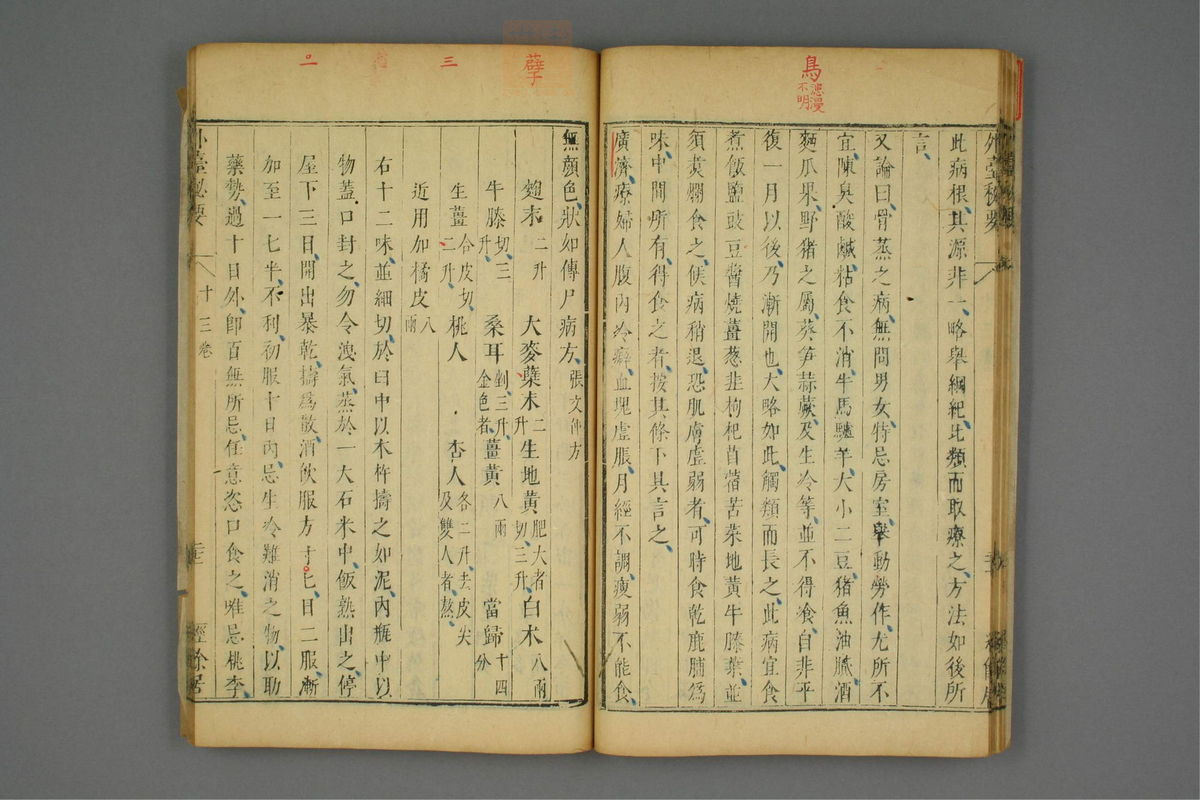 鳥
漶漫
不明
此病根其源非一略舉綱紀比類而取療之方法如後所
言
又論曰骨蒸之病無問男女特忌房室舉動勞作尤所不
宜陳臭酸鹹粘食不消牛馬驢羊大小二豆豬魚油膩酒
麵瓜果野豬之屬葵笋蒜蕨及生冷等並不得飡自非平
復一月以後乃漸開也大略如此觸類而長之此病宜食
煮飯鹽豉豆醬燒薑葱韭枸杞苜蓿苦菜地黃牛膝葉並
須煑爛食之候病稍退恐肌膚虛弱者可時食乾鹿脯為
味中間所有得食之者按其條下具言之
廣濟療婦人腹內冷癖血塊虛脹月經不調瘦弱不能食
孽
三
無顏色狀如傳尸病方張文仲方
麴末二升 大麥蘖末二升 生地黃肥大者切三升 白术八兩
牛膝切三升 桑耳剉三升金色者 薑黃八兩 當歸十四分
生薑合皮切二升 桃人 杏人各二升去皮尖及雙人者熬
近用加橘皮八兩
右十二味並細切於臼中以木杵擣之如泥內瓶中以
物蓋口封之勿令洩氣蒸於一大石米中飯熟出之停
屋下三日開出暴乾擣為散酒飲服方寸匕日二服漸
加至一七半不利初服十日內忌生冷難消之物以助
藥勢過十日外卽百無所忌任意恣口食之唯忌桃李
外臺秘要
十三卷
經餘居